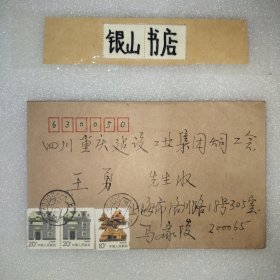 银山书店
630050
四川重庆建设工业集团公司工会
王勇 先生收
上海市洛川路18号305室
马 陵 200065
20分 20分 10分
中国人民邮政 中国人民邮政 中国人民邮政